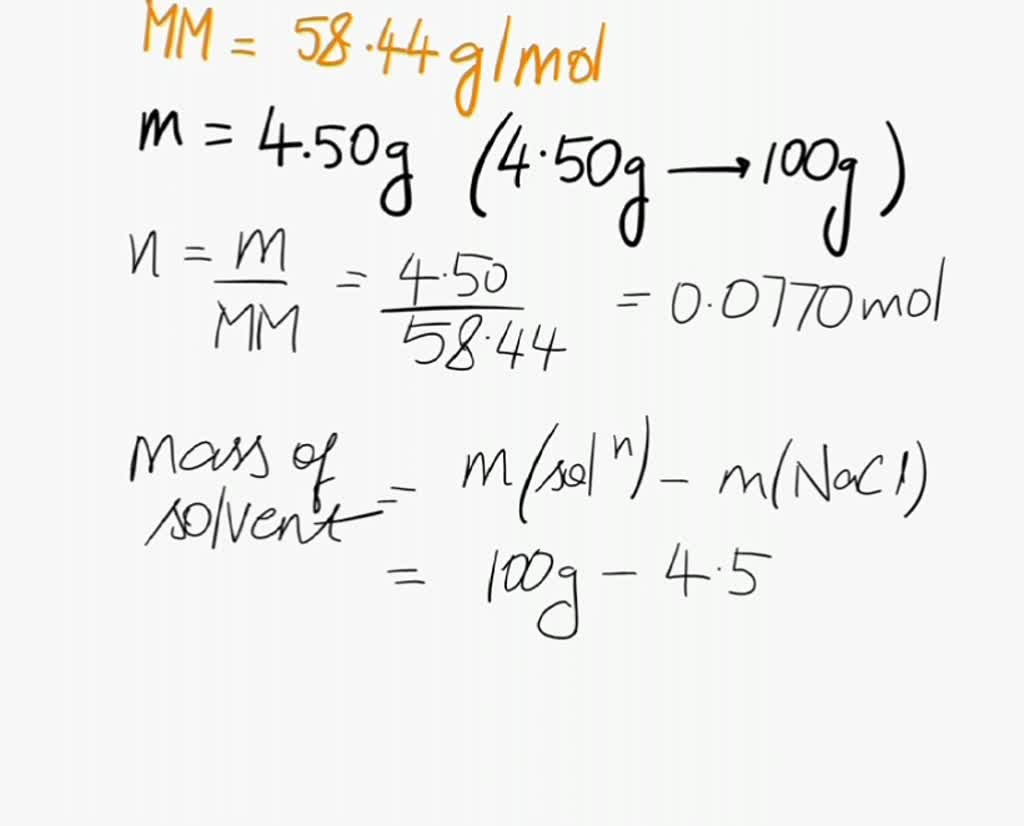 MM = 58.44 g/mol
m = 4.50g (4.50g → 100g)
n = m/MM = 4.50/58.44 = 0.0770 mol
Mass of solvent = m(solⁿ) - m(NaCl)
= 100g - 4.5